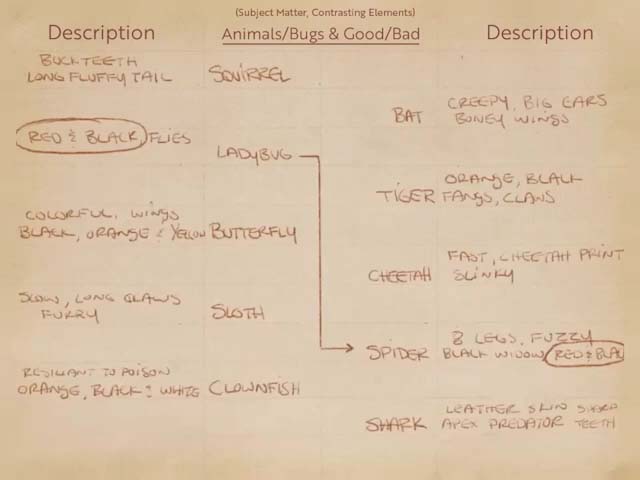 (Subject Matter, Contrasting Elements)
Description
Animals/Bugs & Good/Bad
Description
BUCKTEETH
LONG FLUFFY TAIL
SQUIRREL
BAT
CREEPY, BIG EARS
BONEY WINGS
RED & BLACK FLIES
LADYBUG
TIGER
ORANGE, BLACK
FANGS, CLAWS
COLORFUL, WINGS
BLACK, ORANGE & YELLOW
BUTTERFLY
CHEETAH
FAST, CHEETAH PRINT
SLINKY
SLOW, LONG CLAWS
FURRY
SLOTH
SPIDER
8 LEGS, FUZZY
BLACK WIDOW RED & BLAC
TO POISON
ORANGE, BLACK & WHITE
CLOWNFISH
SHARK
LEATHER SKIN SHARP
APEX PREDATOR TEETH